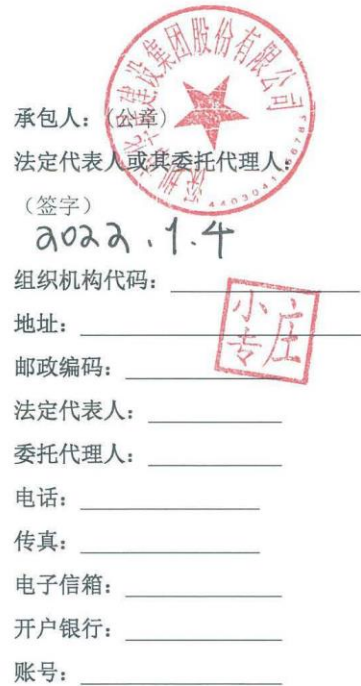 建设集团股份有限公司
承包人：（公章）
法定代表人或其委托代理人：
（签字）
2022.1.4
组织机构代码：
小庄
专
地址：
邮政编码：
法定代表人：
委托代理人：
电话：
传真：
电子信箱：
开户银行：
账号：